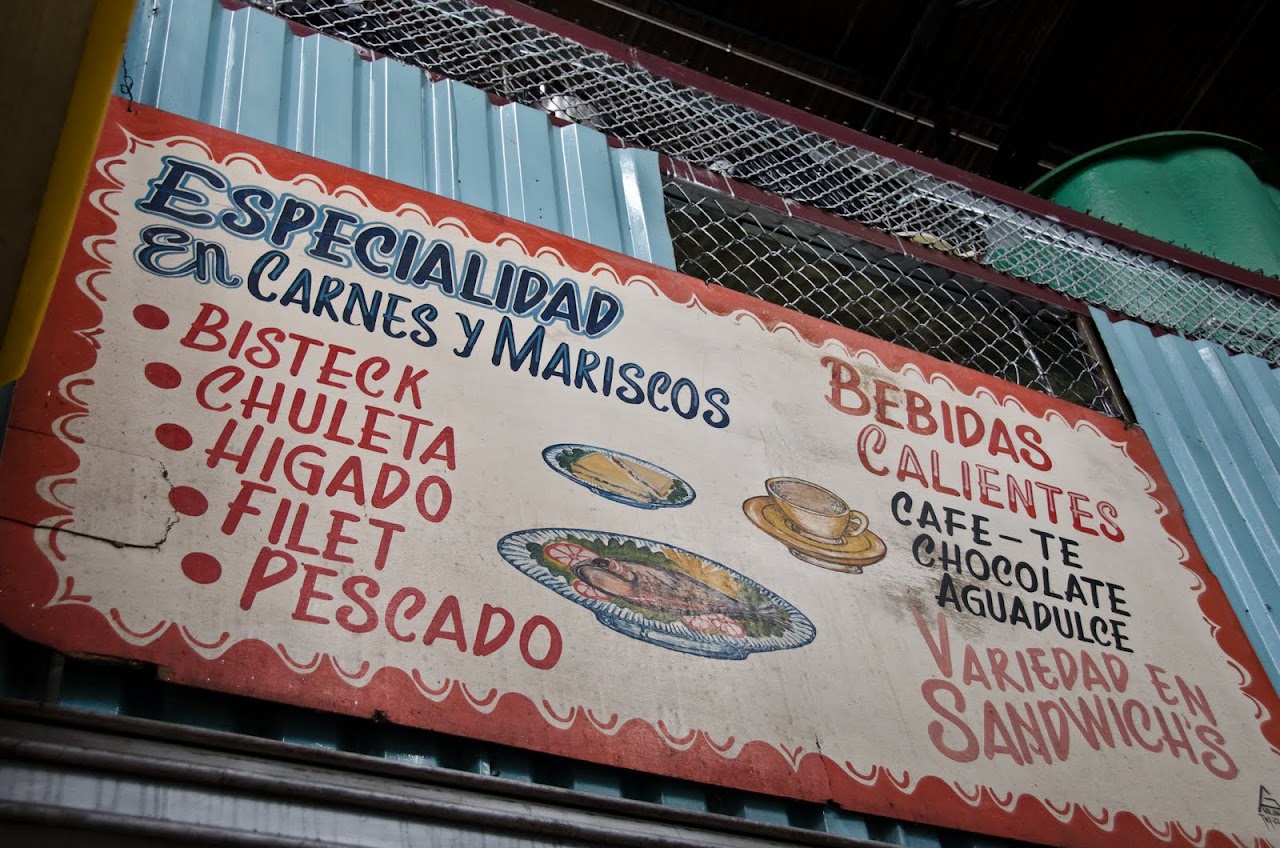 ESPECIALIDAD
En CARNES Y MARISCOS
• BISTECK
• CHULETA
• HIGADO
• FILET
• PESCADO
BEBIDAS
CALIENTES
CAFE-TE
CHOCOLATE
AGUADULCE
VARIEDAD EN
SANDWICH'S